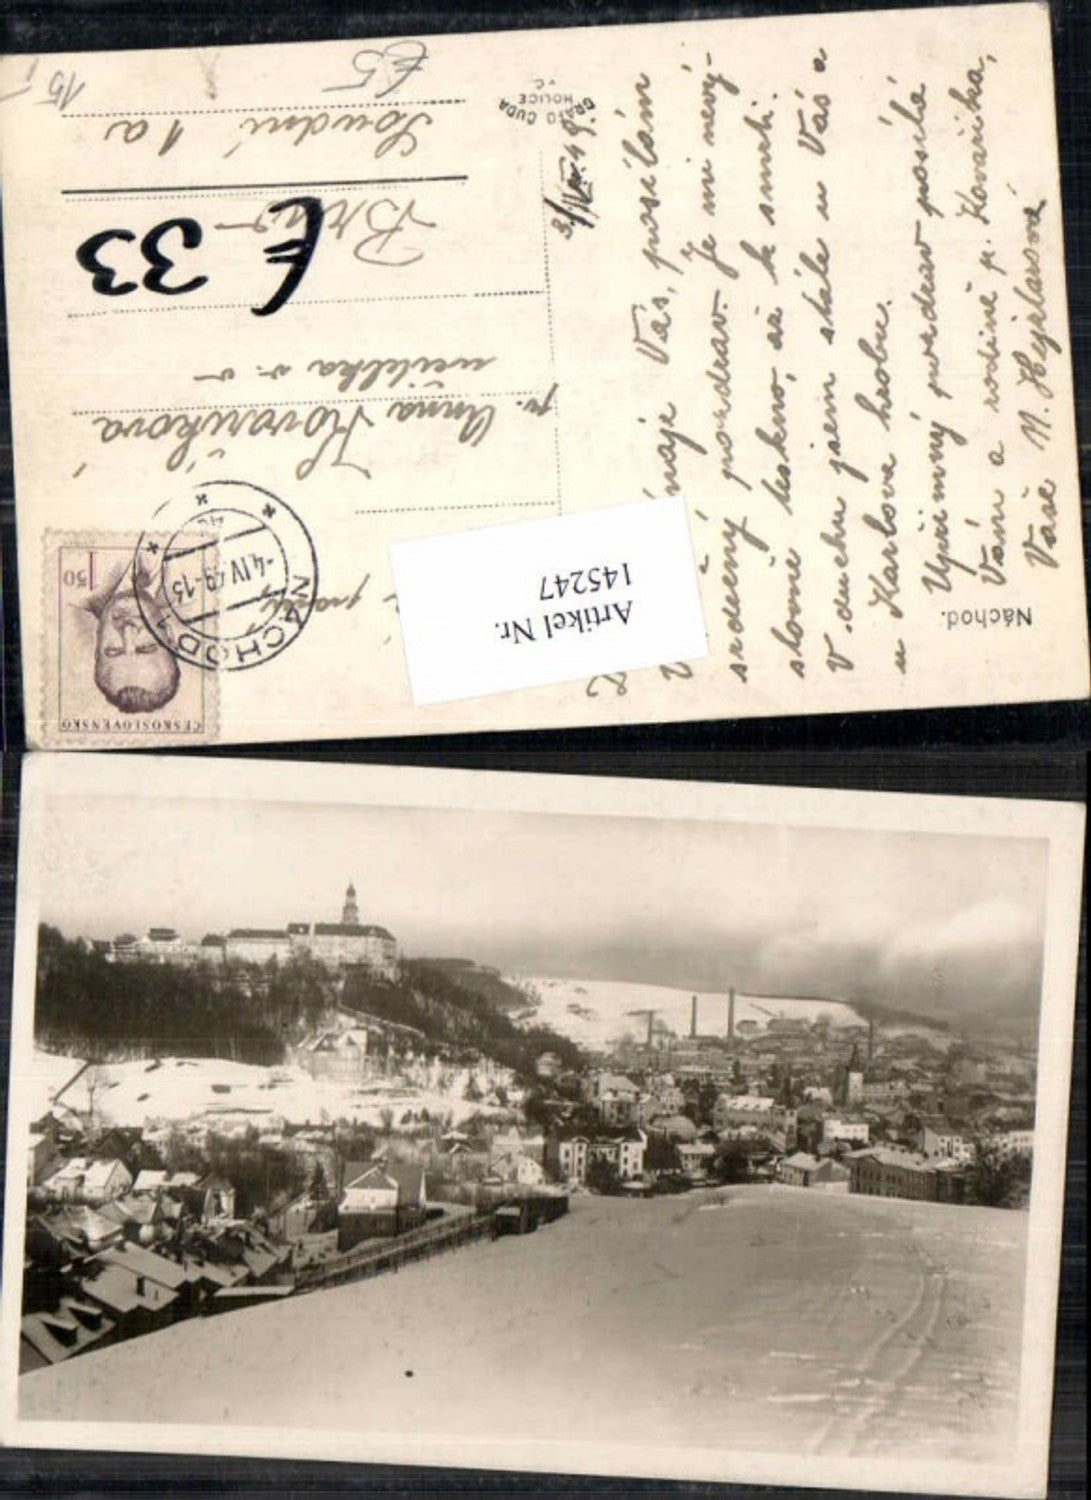 Náchod.
Vás, posílám
srdečný pozdrav. Je mi nevý-
slovně teskno, až k smrti.
V duchu jsem stále u Vás a
u Karlova hrobu.
Upřímný pozdrav posílá
Vám a rodině p. Kovaříka,
Vaše M. Hejzlarová
3./IV. 49.
GRAFO CUDA
HOLICE
V.Č.
ČESKOSLOVENSKO
1 50
NÁCHOD 1
-4.IV 49-15
p. Anna Kovaříková
učitelka v. v.
Brno
Soudní 1a
£ 33
£5
15
Artikel Nr.
145247